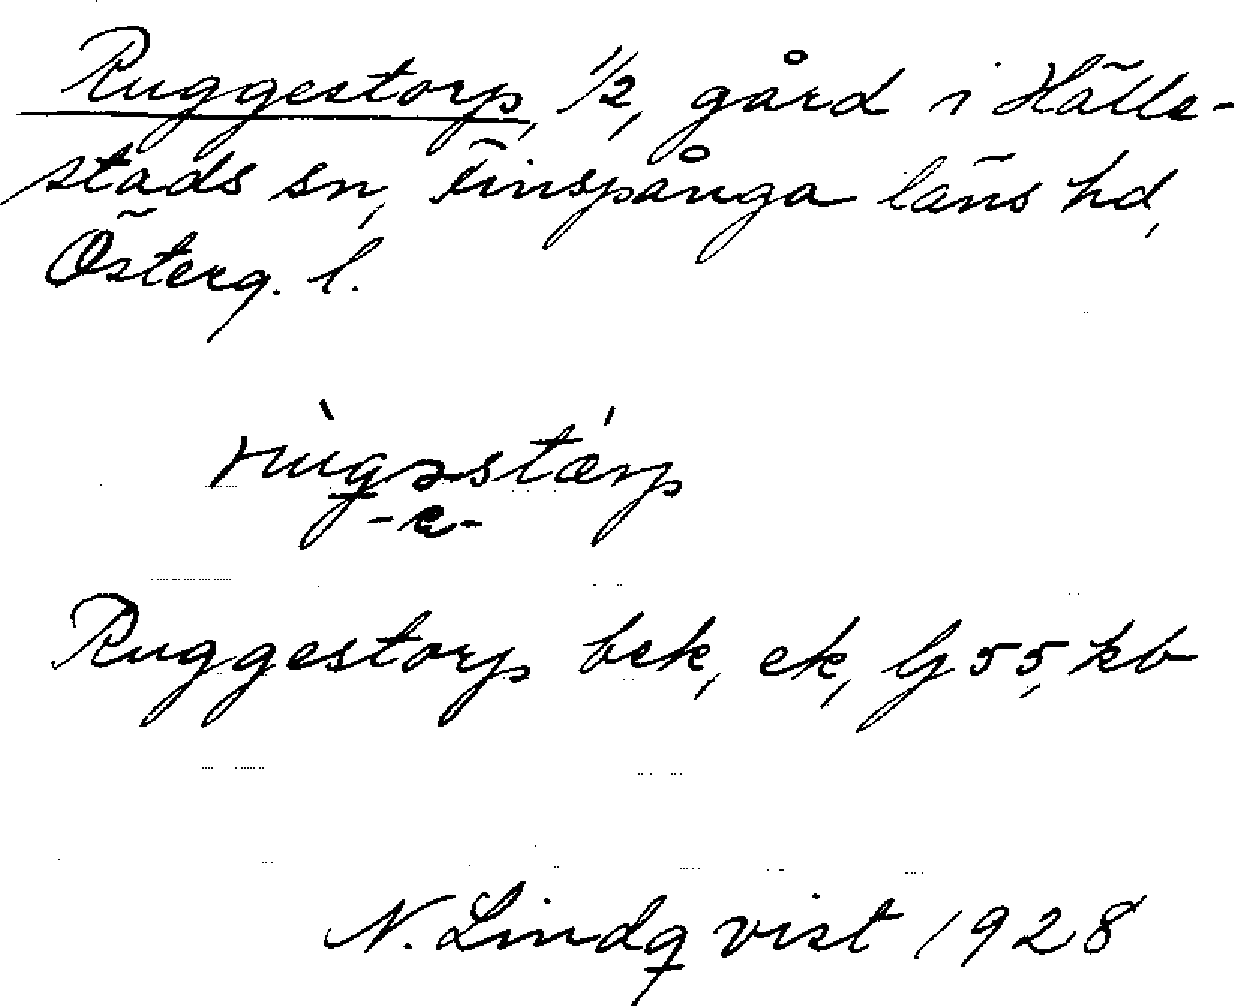 Ruggestorp, 1/2, gård i Hälle-
stads sn, Finspånga läns hd,
Österg. l.
Ruggestorp bek, ek, Gj 55, kb
N. Lindqvist 1928